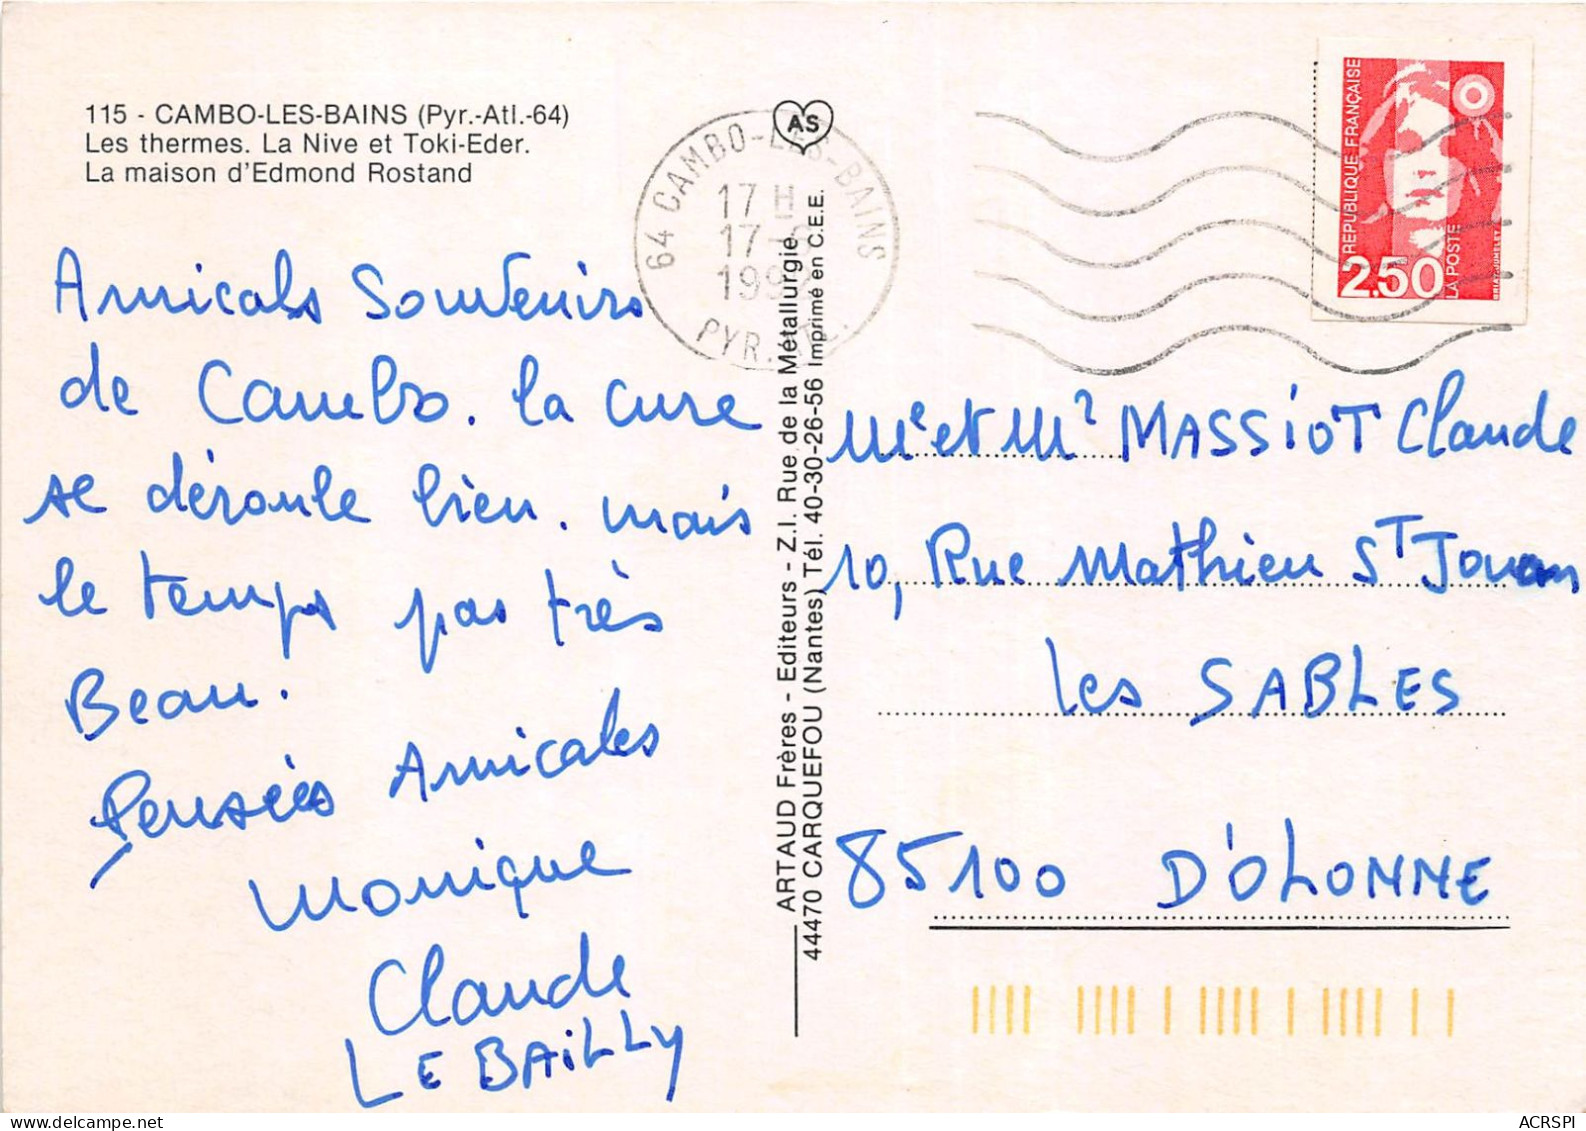 115 - CAMBO-LES-BAINS (Pyr.-Atl.-64)
Les thermes. La Nive et Toki-Eder.
La maison d'Edmond Rostand
Amicals Souvenirs
de Cambo. la cure
se déroule bien. mais
le temps pas très
Beau.
Pensées Amicales
Monique
Claude
LE BAILLY
AS
64 CAMBO-LES-BAINS
17 H
17-
199
PYR. ATL.
ARTAUD Frères - Editeurs - Z.I. Rue de la Métallurgie
44470 CARQUEFOU (Nantes) Tél. 40-30-26-56 Imprimé en C.E.E.
RÉPUBLIQUE FRANÇAISE
2,50
LA POSTE
Me et Mr MASSIOT Claude
10, Rue Mathieu ST Jouan
Les SABLES
85100 D'OLONNE
ACRSPI